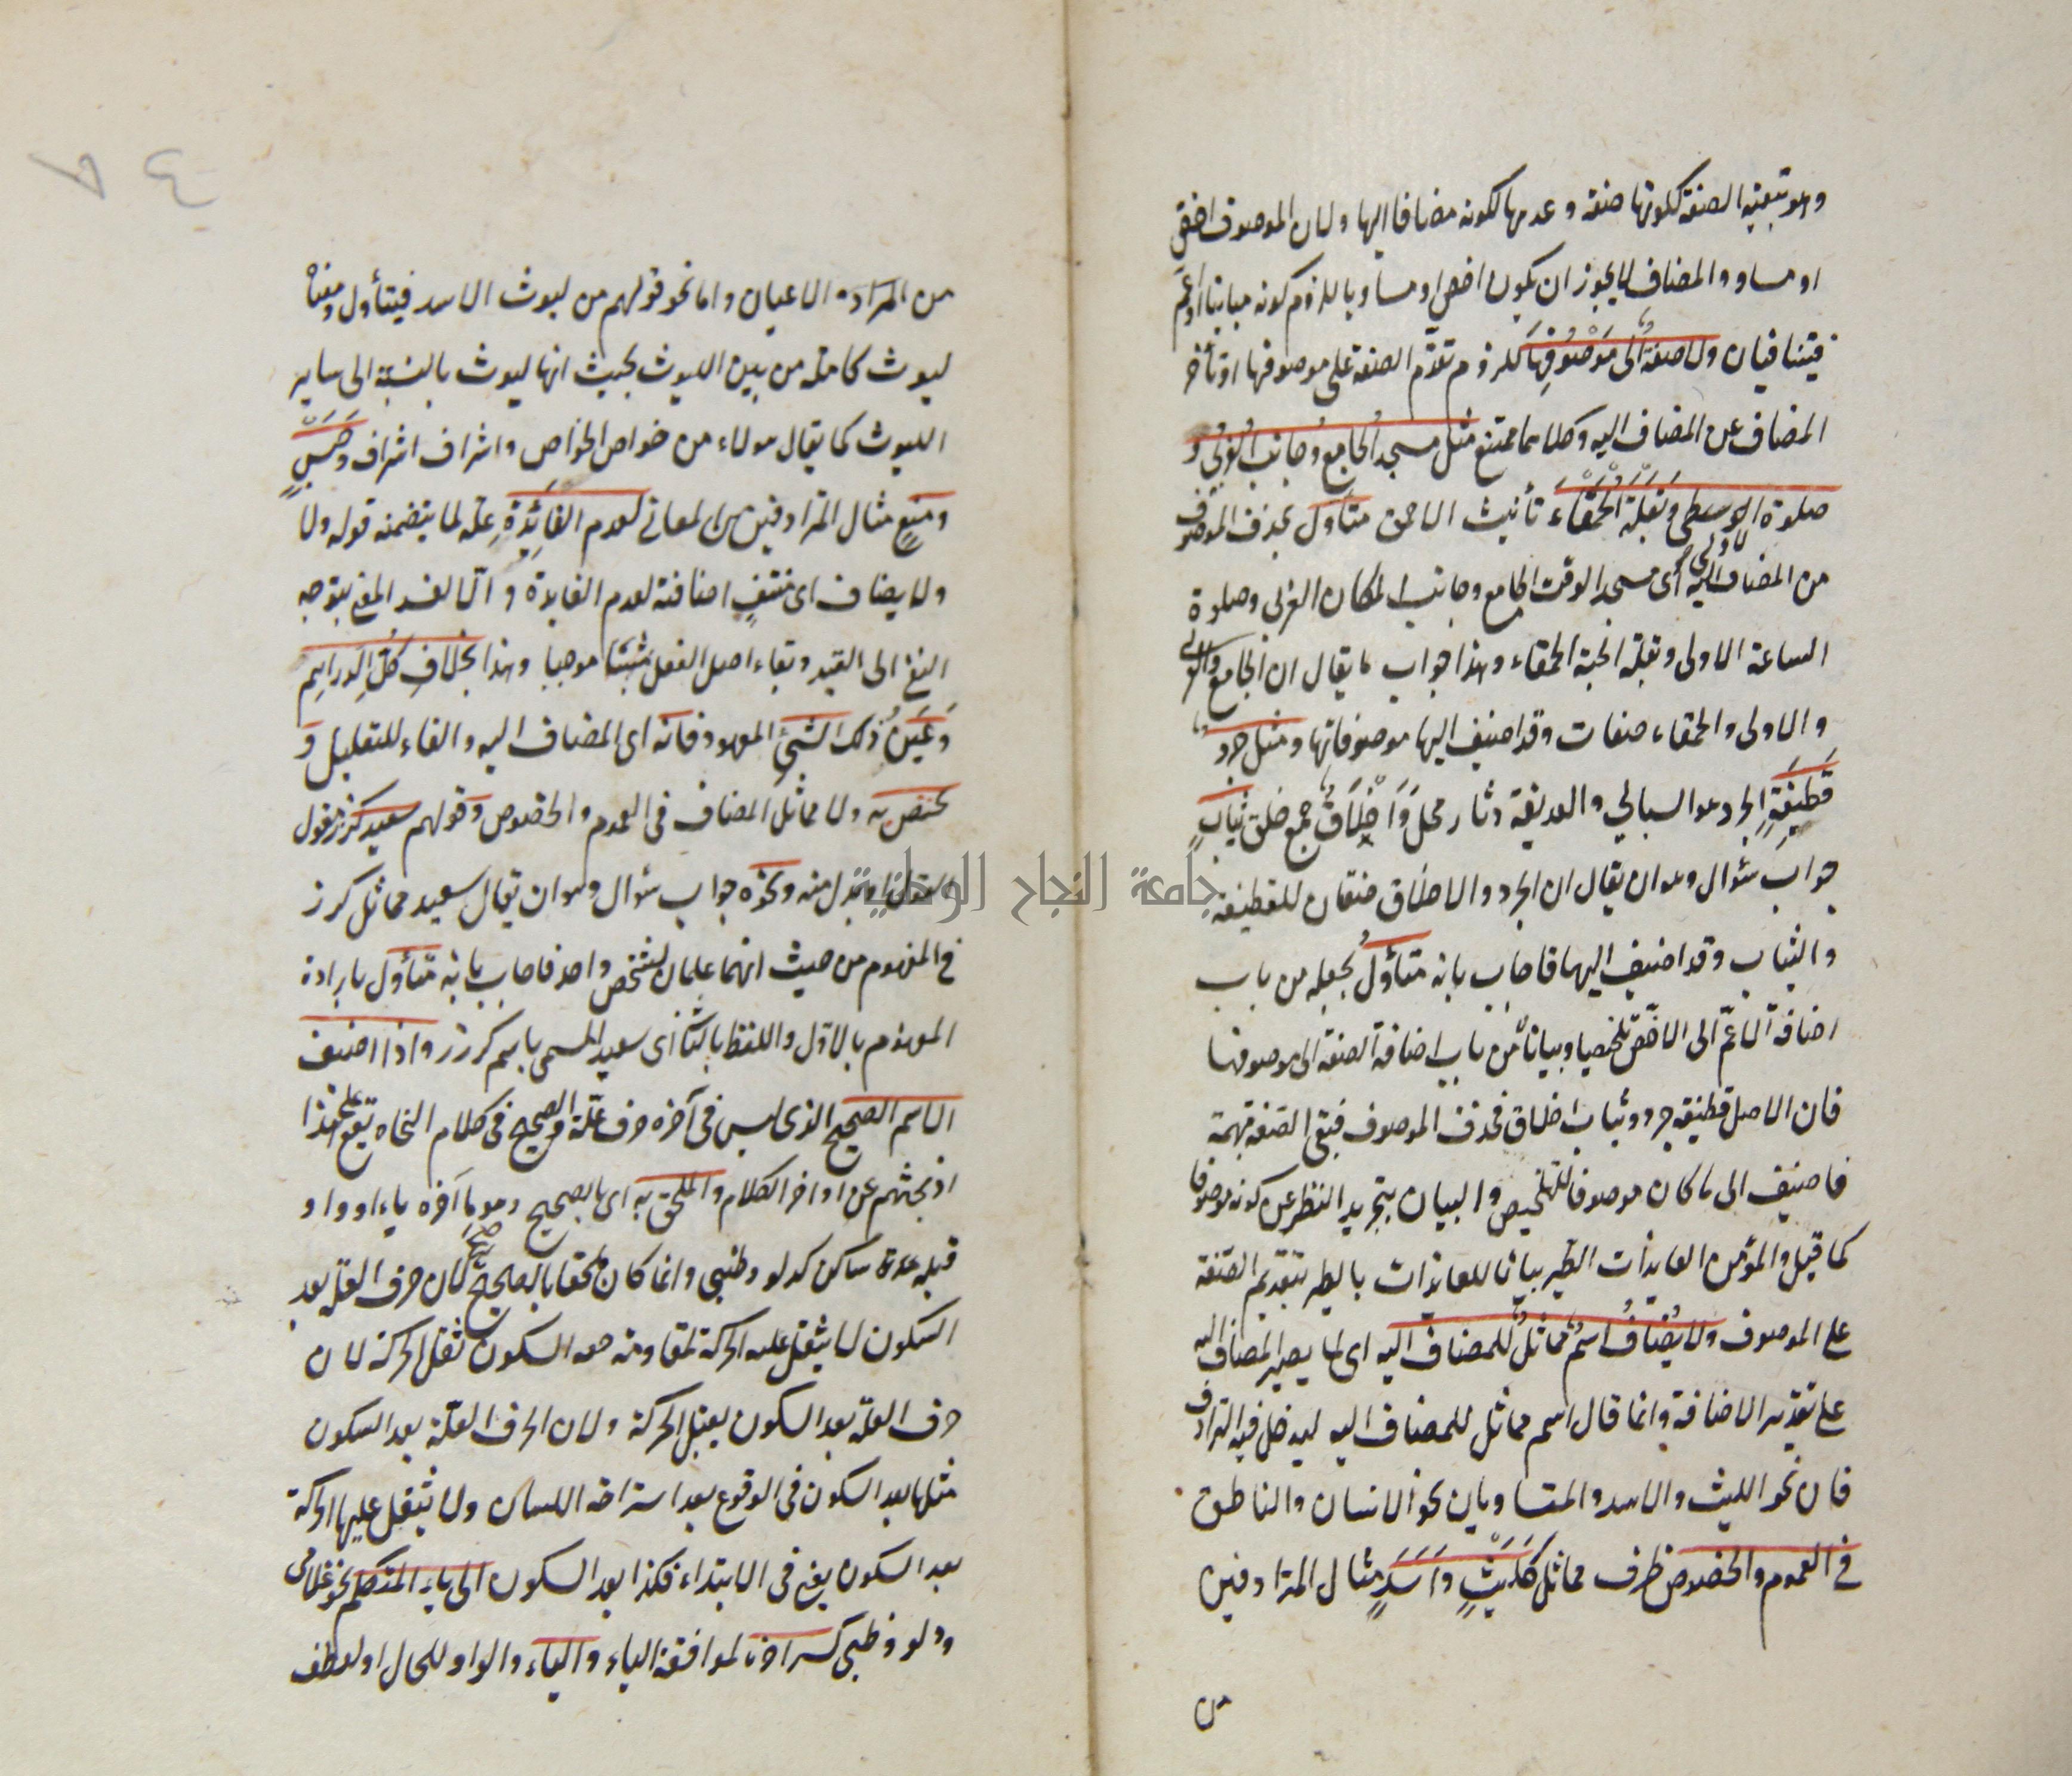 وهو تبعية الصفة لكونها صفة وعدمها لكونه مضافا اليها ولان الموصوف اخص
او مساو والمضاف لا يجوز ان يكون اخص او مساويا للزوم كونه مباينا او اعم
فيتنافيان ولا صفةٌ الى مَوْصُوفِهَا للزوم تقدّم الصفة على موصوفها او تأخر
المضاف عن المضاف اليه وكلاهما ممتنع مثل مسجد الجامع وجانب الغربي و
صلوة الاولى وبَقْلَةِ الْحَمْقَاءِ تأنيث الاحمق متأول بحذف الموصوف
من المضاف اليه اى مسجد الوقت الجامع وجانب المكان الغربى وصلوة
الساعة الاولى وبقلة الحبة الحمقاء وهذا جواب ما يقال ان الجامع والغربى
والاولى والحمقاء صفات وقد اضيف اليها موصوفاتها ومثل جردُ
قَطِيْفَةٍ الجرد هو البالي والقطيفة دثار مخمل وَاَخْلَاقُ جمع خلق ثِيَابٍ
جواب سئوال وهو ان يقال ان الجرد والاخلاق صفتان للقطيفة
والثياب وقد اضيف اليها فاجاب بانه متأوّلٌ بجعله من باب
اضافة الاعمّ الى الاخصّ تلخيصا وبيانا لا من باب اضافة الصفة الى موصوفها
فان الاصل قطيفة جرد وثياب اخلاق فحذف الموصوف فبقى الصفة مبهمة
فاضيف الى ما كان موصوفا للتلخيص والبيان بتجريد النظر عن كونه موصوفا
كما قيل والمؤمن العايذات الطير بيانا للعايذات بالطير بتقديم الصفة
على الموصوف ولا يُضَافُ اسمٌ مماثلٌ للمضاف اليه اى لما يصير المضاف اليه
على تقدير الاضافة وانما قال اسم مماثل للمضاف اليه ليدخل فيه الترادف
فان نحو الليث والاسد والمتساويان نحو الانسان والناطق
في العموم والخصوص ظرف مماثل كَلَيْثٍ وَاَسَدٍ مثال المترادفين
من
٨٤
من المرادة الاعيان واما نحو قولهم من ليوث الاسد فيتأول ومعناه
ليوث كاملة من بين الليوث بحيث انها ليوث بالنسبة الى ساير
الليوث كما يقال هولاء من خواص الخواص واشراف اشراف وحَبْسٍ
ومَنْعٍ مثال المترادفين من المعاني لعدم الفَائِدَةِ علة لما يتضمنه قوله ولا
ولا يضاف اى منتفٍ اضافته لعدم الفايدة والا لفسد المعنى بتوجه
النفى الى القيد وبقاء اصل الفعل مثبتا موجبا وهذا بخلافِ كلِّ الدراهم
وَعَيْنُ ذلك الشئِ المعهود فانه اى المضاف اليه والفاء للتعليل و
يختص به ولا مماثل المضاف في العموم والخصوص وقولهم سعيد كرز مقول
القول او بدل منه ونحوه جواب سئوال وهو ان يقال سعيد مماثل كرز
في المفهوم من حيث انهما علمان لشخص واحد فاجاب بانه متأول بارادة
المفهوم بالاول واللفظ بالثانى اى سعيد المسمى باسم كرز واذا اضيف
الاسم الصحيح الذى ليس في آخره حرف علّة والصحيح في كلام النحاة يقع على هذا
اذ بحثهم عن اواخر الكلام والملحق به اى بالصحيح وهو ما آخره ياء او واو
قبله عدة ساكن كدلو وظبى وانما كان ملحقا بالصحيح لان حرف العلة بعد
السكون لا يثقل عليه الحركة لمقاومة خفة السكون ثقل الحركة لان
حرف العلة بعد السكون يقبل الحركة ولان الحرف العلّة بعد السكون
مثلها بعد السكون فى الوقوع بعد استراحة اللسان ولا يثقل عليها الحركة
بعد السكون يعنى فى الابتداء فكذا بعد السكون الى ياء المتكلم نحو غلامى
ودلوى وظبيى كسر آخره لموافقة الياء والياء والواو للحال او لعطف
جامعة النجاح الوطنية